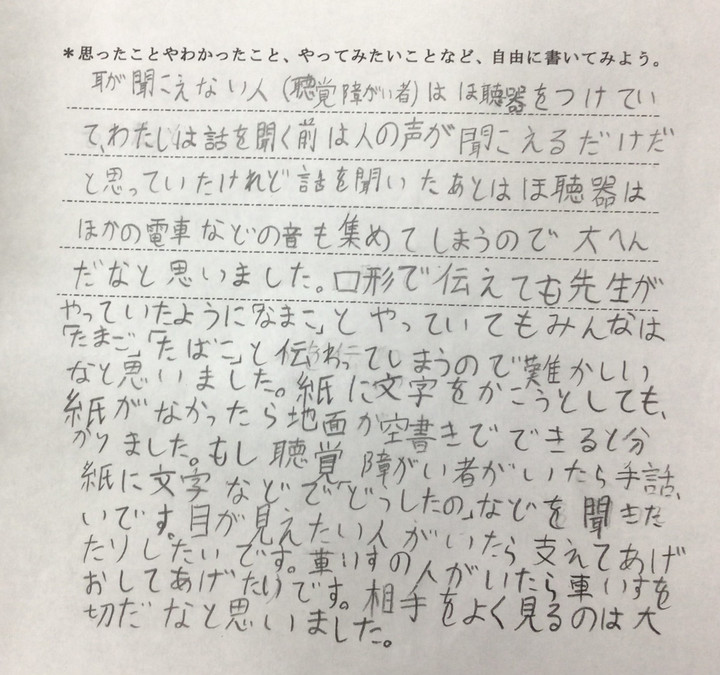 ＊思ったことやわかったこと、やってみたいことなど、自由に書いてみよう。
耳が聞こえない人(聴覚障がい者)はほ聴器をつけてい
て、わたしは話を聞く前は人の声が聞こえるだけだ
と思っていたけれど話を聞いたあとはほ聴器は
ほかの電車などの音も集めてしまうので大へん
だなと思いました。口形で伝えても先生が
やっていたように「なまこ」とやっていてもみんなは
「たまご」「たばこ」と伝わってしまうので難かしい
なと思いました。紙に文字をかこうとしても、
紙がなかったら地面か空書きでできると分
かりました。もし聴覚障がい者がいたら手話、
紙に文字などで「どうしたの」などを聞きた
いです。目が見えたい人がいたら支えてあげ
たりしたいです。車いすの人がいたら車いすを
おしてあげたいです。相手をよく見るのは大
切だなと思いました。